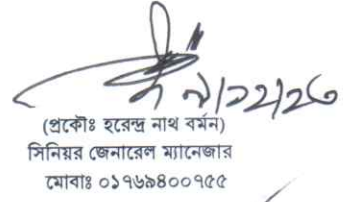 (প্রকৌঃ হরেন্দ্র নাথ বর্মন)
সিনিয়র জেনারেল ম্যানেজার
মোবাঃ ০১৭৬৯৪০০৭৫৫